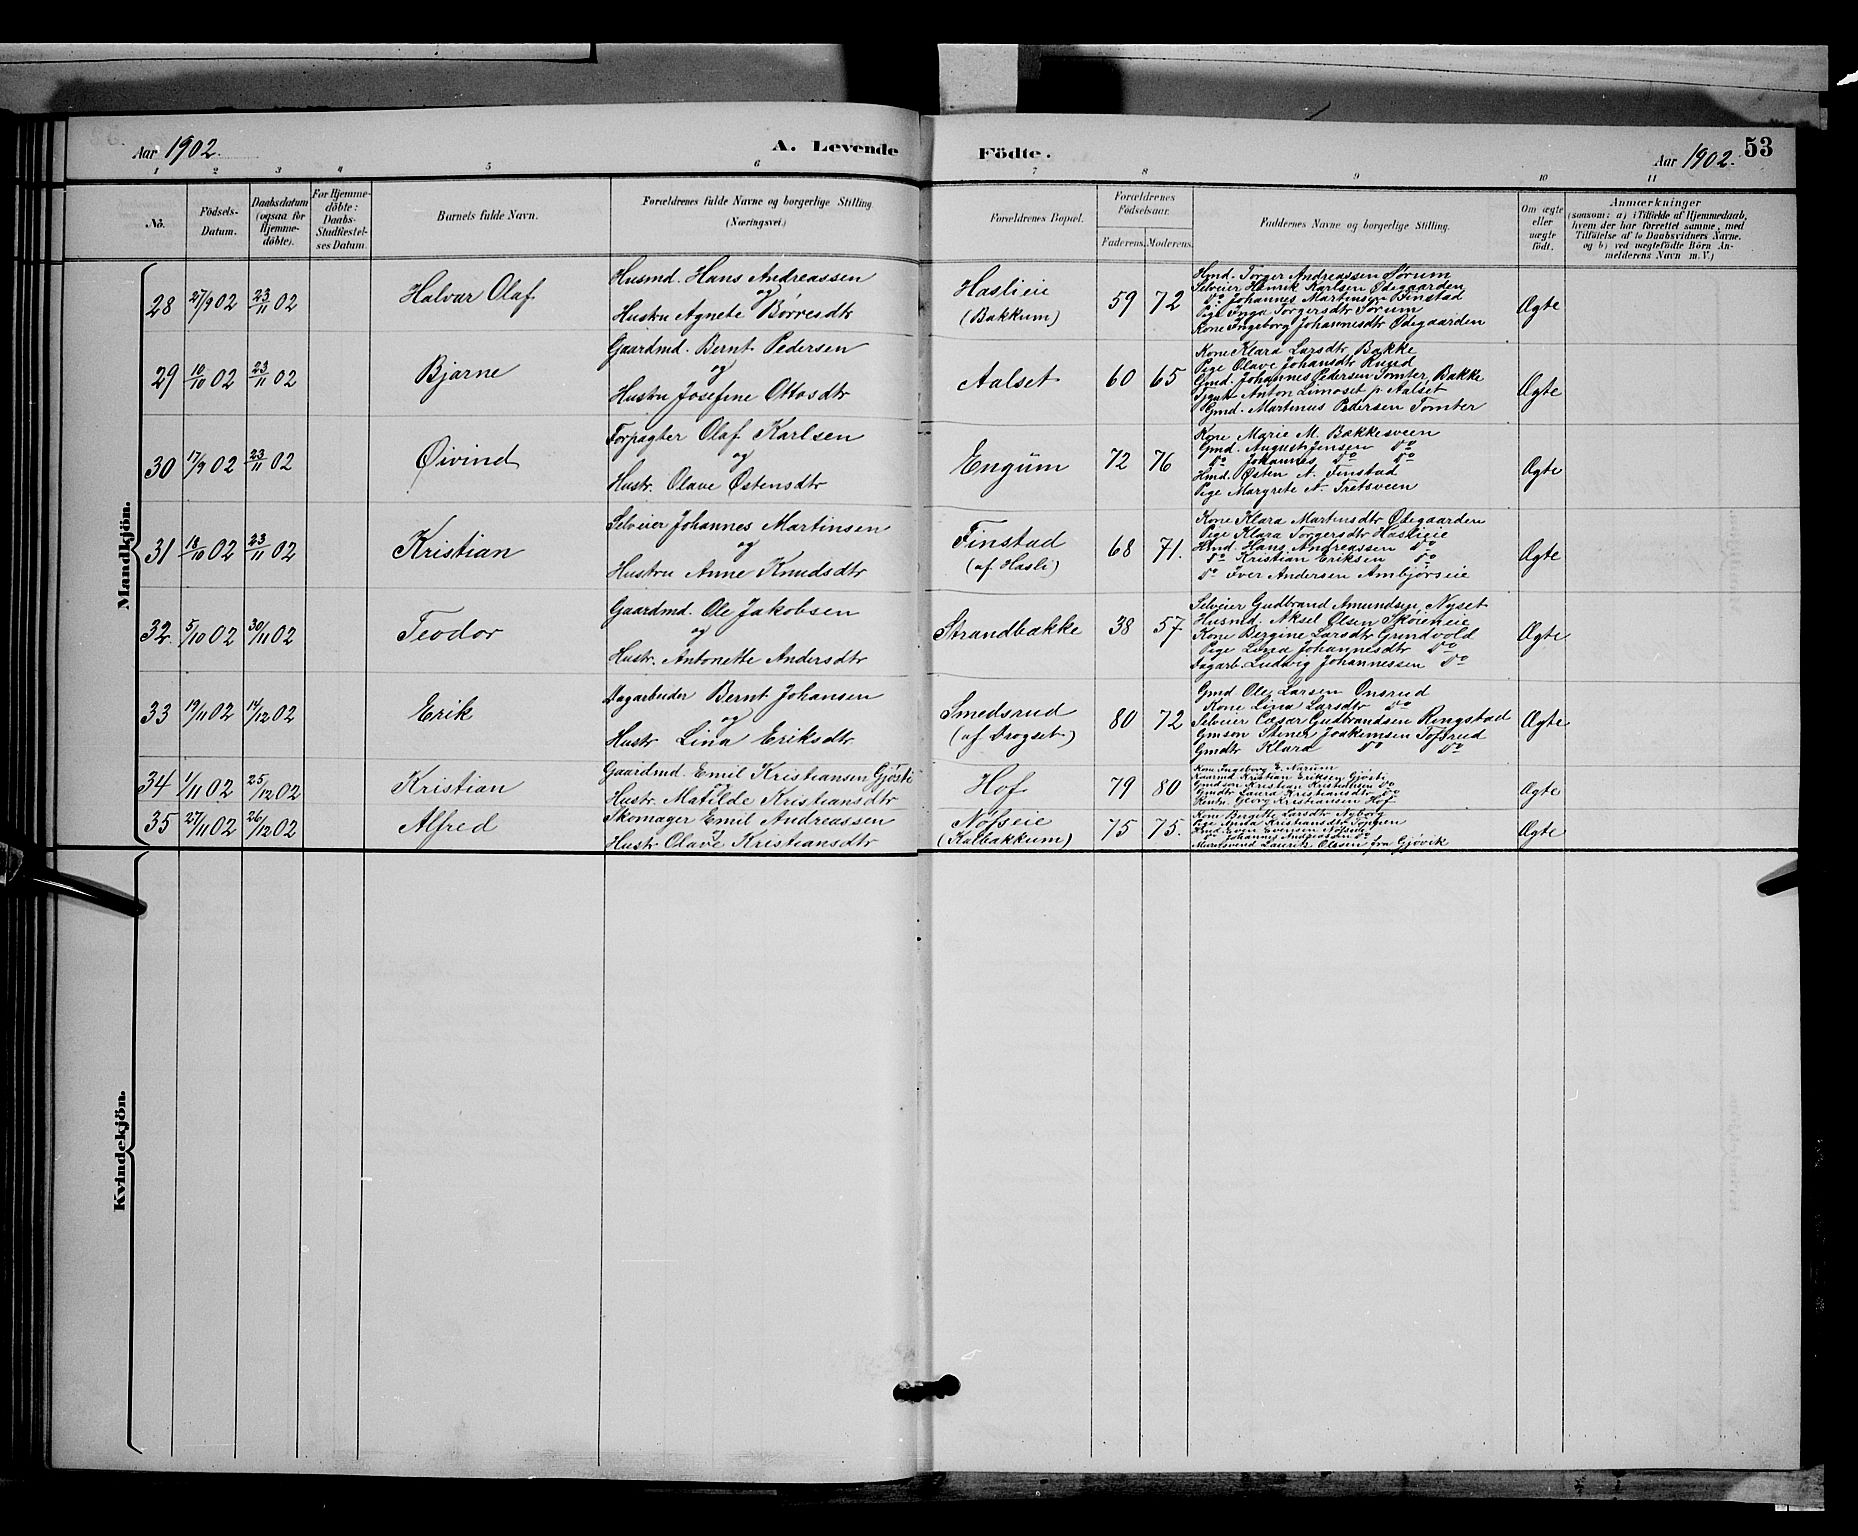 Aar 1902.
A. Levende Födte.
Aar 1902. 53
1 2 3 4 5 6 7 8 9 10 11
No.
Födsels-Datum.
Daabsdatum (ogsaa for Hjemme-döbte).
For Hjemme-döbte: Daabs-Stadfæstel-ses Datum.
Barnets fulde Navn.
Forældrenes fulde Navne og borgerlige Stilling. (Næringsvei.)
Forældrenes Bopæl.
Forældrenes Födselsaar.
Faderens. Moderens.
Faddernes Navne og borgerlige Stilling.
Om ægte eller uægte födt.
Anmærkninger
(saasom: a) i Tilfælde af Hjemmedaab,
hvem der har forrettet samme, med
Tilföielse af to Daabsvidners Navne.
og b) ved uægtefödte Börn An-
melderens Navn m. V.)
Mandkjön.
28 27/9 02 23/11 02 Halvar Olaf
Husmd. Hans Andreassen
og
Hustru Agnete Børresdtr
Haslieie
(Bakkum)
59 72
Hmd. Torger Andreassen Sørum
Selveier Henrik Karlsen Ødegaarden
Do Johannes Martinsen Finstad
Pige Inga Torgersdtr Sørum
Kone Ingeborg Johannesdtr Ødegaarden
Ægte
29 10/10 02 23/11 02 Bjarne
Gaardmd. Bernt Pedersen
og
Hustru Josefine Ottosdtr
Aalset
60 65
Kone Klara Larsdtr Bakke
Pige Olave Johansdtr Rund
Gmd. Johannes Pedersen Tomter, Bakke
Anton Limoset p. Aalset
Gmd. Martinus Pedersen Tomter
Ægte
30 17/9 02 23/11 02 Øivind
Forpagter Olaf Karlsen
og
Hustr. Olave Østensdtr
Engum
72 76
Kone Marie M. Bakkesveen
Gmd. August Jensen Do
Do Johannes Do Do
Hmd. Østen A. Finstad
Pige Margrete A. Fretsveen
Ægte
31 18/10 02 23/11 02 Kristian
Selveier Johannes Martinsen
og
Hustru Anne Knudsdtr
Finstad
(af Hasli)
68 71.
Kone Klara Martinsdtr Ødegaarden
Pige Klara Torgersdtr Haslieie
Hmd. Hans Andreassen Do
Do Kristian Eriksen Do
Do Iver Andersen Ambjørseie
Ægte
32. 5/10 02 30/11 02 Teodor
Gaardmd. Ole Jakobsen
og
Hustr. Antonette Andersdtr
Strandbakke
38 57
Selveier Gudbrand Amundsen, Nyset
Husmd. Aksel Olsen Skøieneie
Kone Bergine Larsdtr Grindvold
Pige Lina Johannesdtr Do
Dagarb. Ludvig Johannessen Do
Ægte
33 19/11 02 14/12 02 Erik
Dagarbeider Bernt Johansen
og
Hustr Lina Eriksdtr
Smedsrud
(af Drogset)
80 72
Gmd Ole Larsen Onsrud
Kone Lina Larsdtr Do
Selveier Cæsar Gudbrandsen Ringstad
Gmsøn Stener Joakimsen Tofsrud
Gmdtr Klara Do Do
Ægte
34 1/11 02 25/12 02 Kristian
Gaardmd. Emil Kristiansen Gjøsti
Hustr. Matilde Kristiansdtr
Hof
79 80
Kone Ingeborg E. Narum
Gaarmd Kristian Eriksen Gjøsti
Gmdsøn Kristian Kristiansen Do
Gmdtr Laura Kristiansdtr Do
Georg Kristiansen Hof
Ægte
35 27/11 02 26/12 02 Alfred
Skomager Emil Andreassen
og
Hustr Olave Kristiansdtr
Nøfseie
(Kalbakkum)
75 75.
Kone Borgitte Larsdtr Nyborg
Pige Anda Kristiansdtr
Hmd. Even Evensen Nøfseie
Do Johannes Andreassen Do
Mursvend Laurits Olssen fra Gjøvik
Ægte
Kvindekjön.